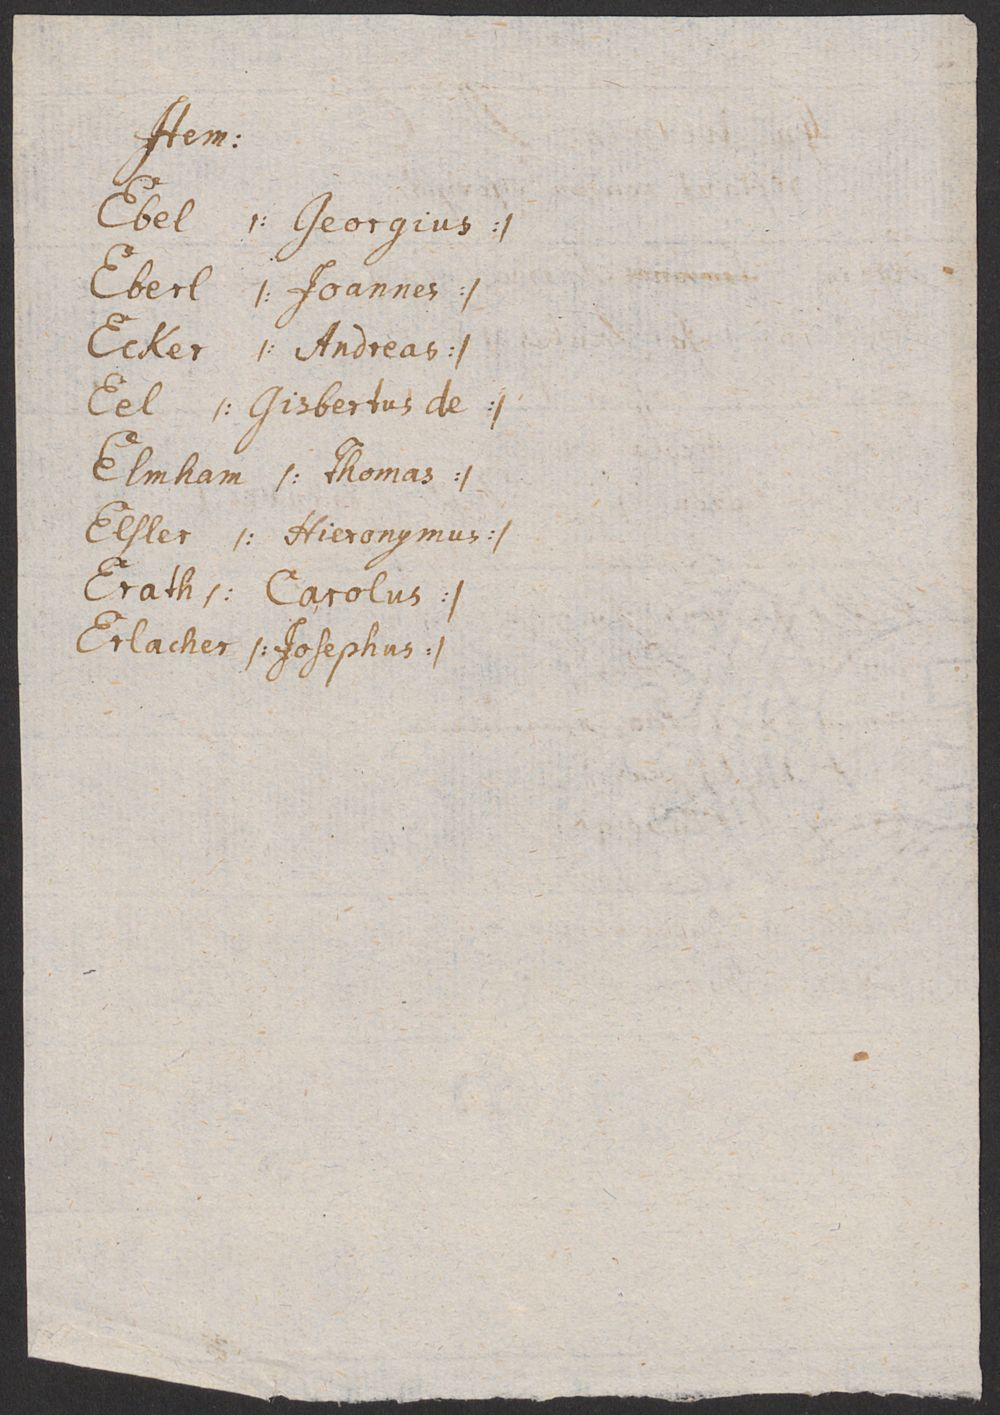 Item:
Ebel /: Georgius :/
Eberl /: Joannes :/
Ecker /: Andreas :/
Eel /: Gisbertus de :/
Elmham /: Thomas :/
Elsler /: Hieronymus :/
Erath /: Carolus :/
Erlacher /: Josephus :/